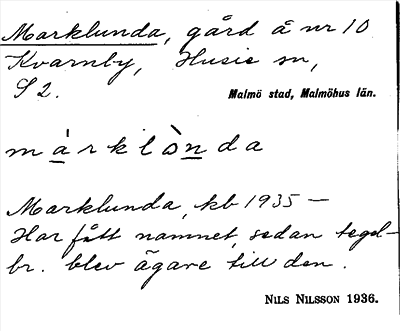 Marklunda, gård å nr 10
Kvarnby, Husie sn,
S 2.
Malmö stad, Malmöhus län.
márklò̀nda
Marklunda, kb 1935 —
Har fått namnet, sedan tegel-
br. blev ägare till den.
NILS NILSSON 1936.